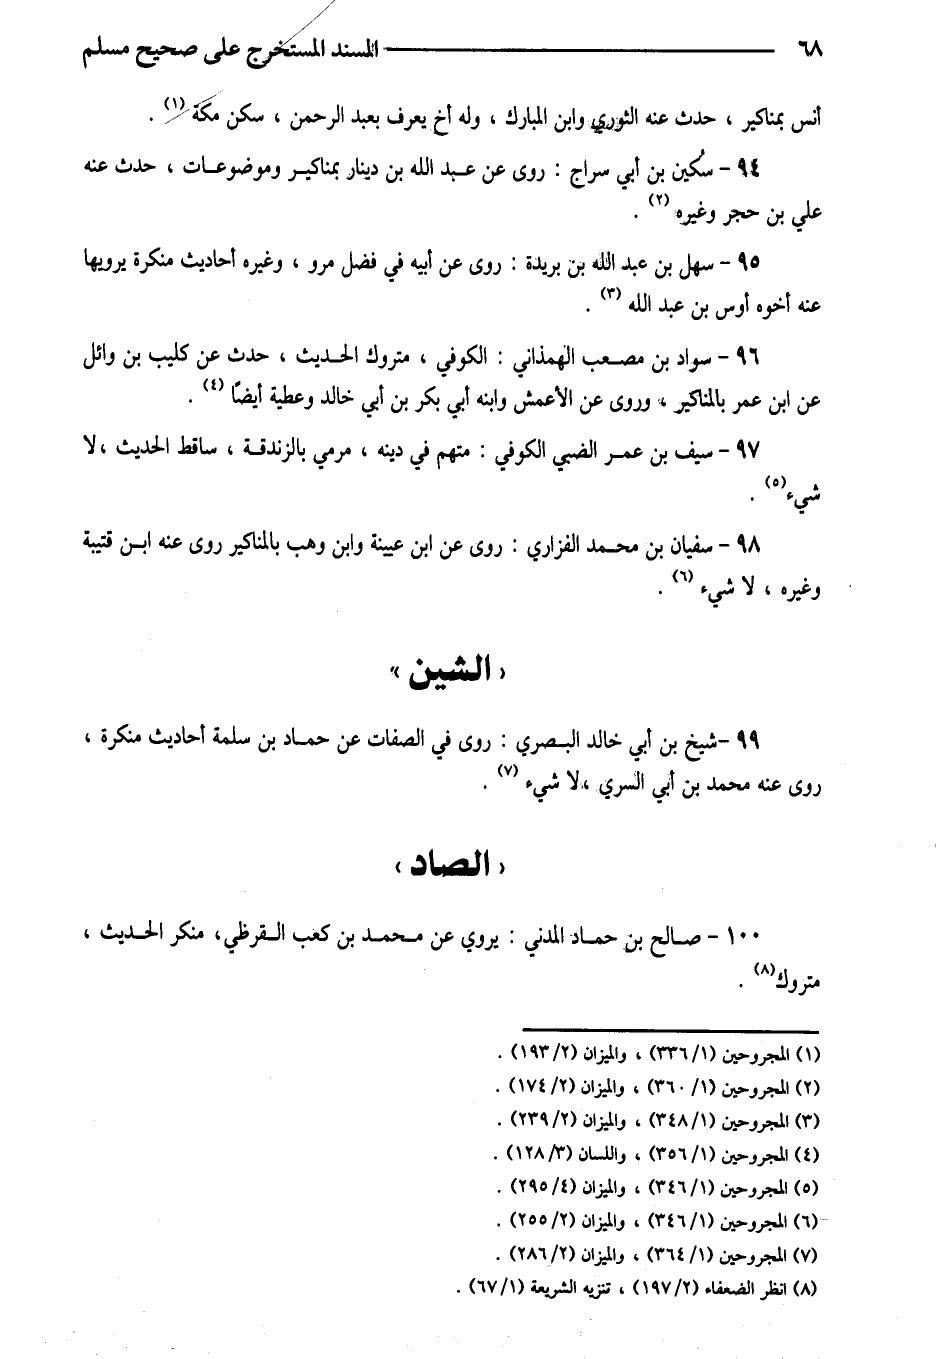 ٦٨ المسند المستخرج على صحيح مسلم
أنس بمناكير ، حدث عنه الثوري وابن المبارك ، وله أخ يعرف بعبد الرحمن ، سكن مكة (١) .
٩٤ - سُكين بن أبي سراج : روى عن عبد الله بن دينار بمناكير وموضوعات ، حدث عنه
علي بن حجر وغيره (٢) .
٩٥ - سهل بن عبد الله بن بريدة : روى عن أبيه في فضل مرو ، وغيره أحاديث منكرة يرويها
عنه أخوه أوس بن عبد الله (٣) .
٩٦ - سواد بن مصعب الهمذاني : الكوفي ، متروك الحديث ، حدث عن كليب بن وائل
عن ابن عمر بالمناكير ، وروى عن الأعمش وابنه أبي بكر بن أبي خالد وعطية أيضًا (٤) .
٩٧ - سيف بن عمر الضبي الكوفي : متهم في دينه ، مرمي بالزندقة ، ساقط الحديث ، لا
شيء (٥) .
٩٨ - سفيان بن محمد الفزاري : روى عن ابن عيينة وابن وهب بالمناكير روى عنه ابن قتيبة
وغيره ، لا شيء (٦) .
« الشين »
٩٩ -شيخ بن أبي خالد البصري : روى في الصفات عن حماد بن سلمة أحاديث منكرة ،
روى عنه محمد بن أبي السري ، لا شيء (٧) .
« الصاد »
١٠٠ - صالح بن حماد المدني : يروي عن محمد بن كعب القرظي، منكر الحديث ،
متروك (٨) .
(١) المجروحين (٣٣٦/١) ، والميزان (١٩٣/٢) .
(٢) المجروحين (٣٦٠/١) ، والميزان (١٧٤/٢) .
(٣) المجروحين (٣٤٨/١) ، والميزان (٢٣٩/٢) .
(٤) المجروحين (٣٥٦/١) ، واللسان (١٢٨/٣) .
(٥) المجروحين (٣٤٦/١) ، والميزان (٢٩٥/٤) .
(٦) المجروحين (٣٤٦/١) ، والميزان (٢٥٥/٢) .
(٧) المجروحين (٣٦٤/١) ، والميزان (٢٨٦/٢) .
(٨) انظر الضعفاء (١٩٧/٢) ، تنزيه الشريعة (٦٧/١) .